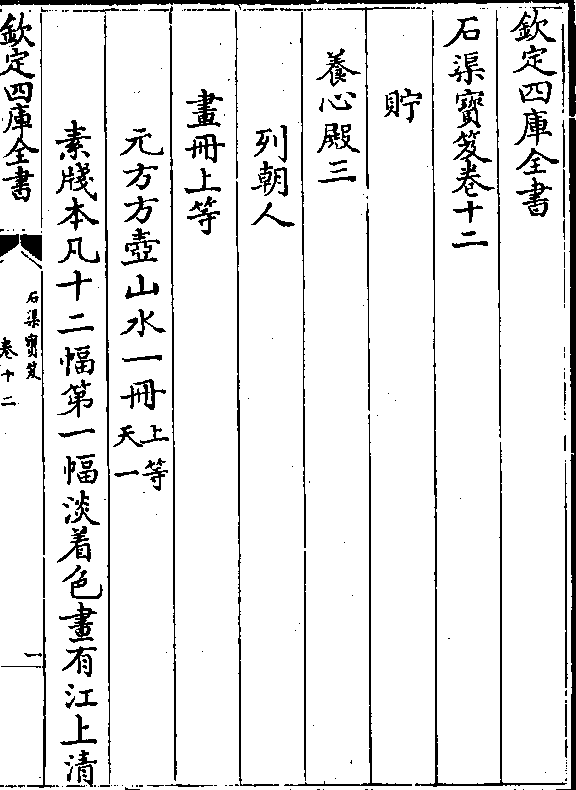 欽定四庫全書
石渠寶笈卷十二
貯
養心殿三
列朝人
畫冊上等
元方方壺山水一冊上等天一
素牋本凡十二幅第一幅淡着色畫有江上清
欽定四庫全書
石渠寶笈
卷十二
一